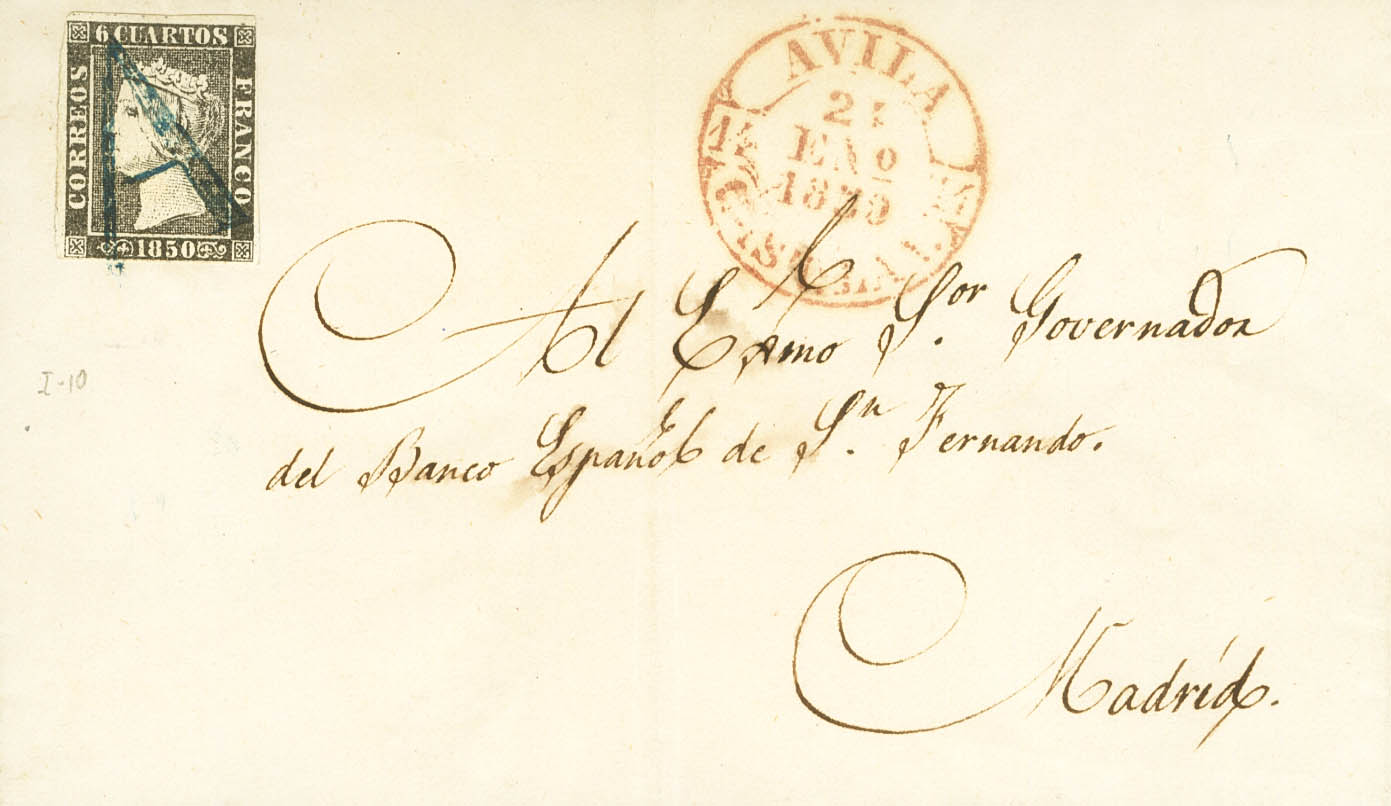 6 CUARTOS
CORREOS
FRANCO
1850
AVILA
ENº
Al Exmo S.or Governador
del Banco Español de S.n Fernando.
I-10
Madrid.